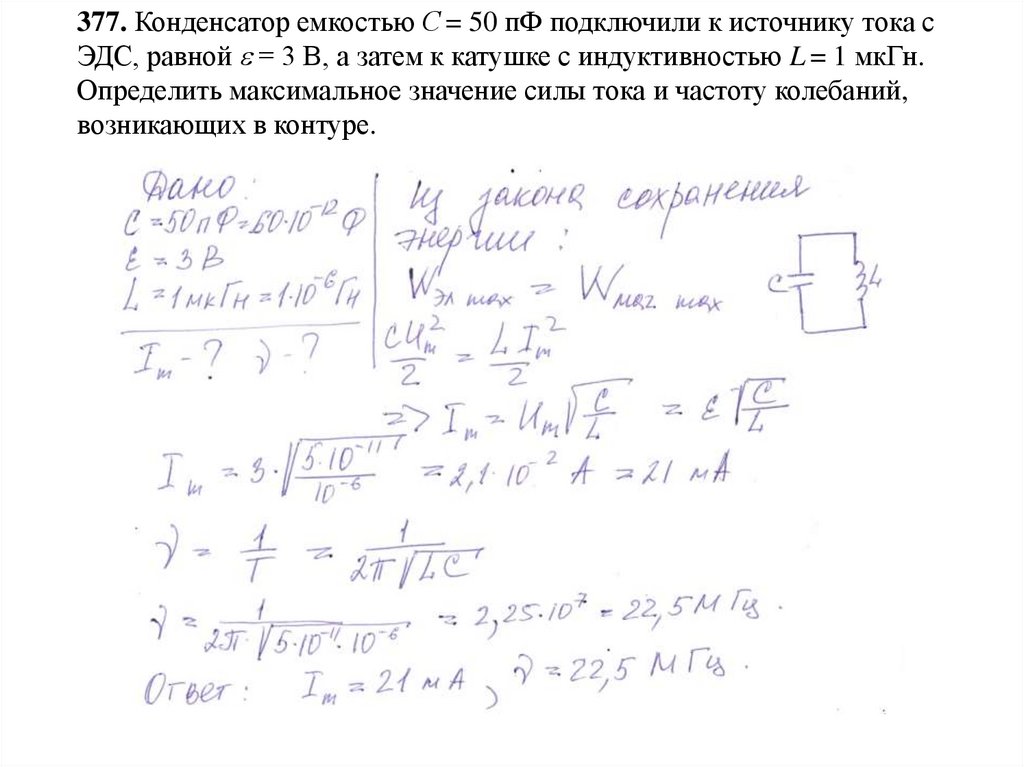 377. Конденсатор емкостью C = 50 пФ подключили к источнику тока с
ЭДС, равной ε = 3 В, а затем к катушке с индуктивностью L = 1 мкГн.
Определить максимальное значение силы тока и частоту колебаний,
возникающих в контуре.
Дано:
C = 50 пФ = 50·10⁻¹² Ф
ε = 3 В
L = 1 мкГн = 1·10⁻⁶ Гн
Iₘ - ? ν - ?
Из закона сохранения
энергии:
Wэл max = Wмаг. max
CUₘ²/2 = LIₘ²/2
C L
=> Iₘ = Uₘ√(C/L) = ε√(C/L)
Iₘ = 3·√(5·10⁻¹¹/10⁻⁶) = 2,1·10⁻² А = 21 мА
ν = 1/T = 1/(2π√LC)
ν = 1/(2π·√(5·10⁻¹¹·10⁻⁶)) = 2,25·10⁷ = 22,5 МГц.
Ответ: Iₘ = 21 мА, ν = 22,5 МГц.